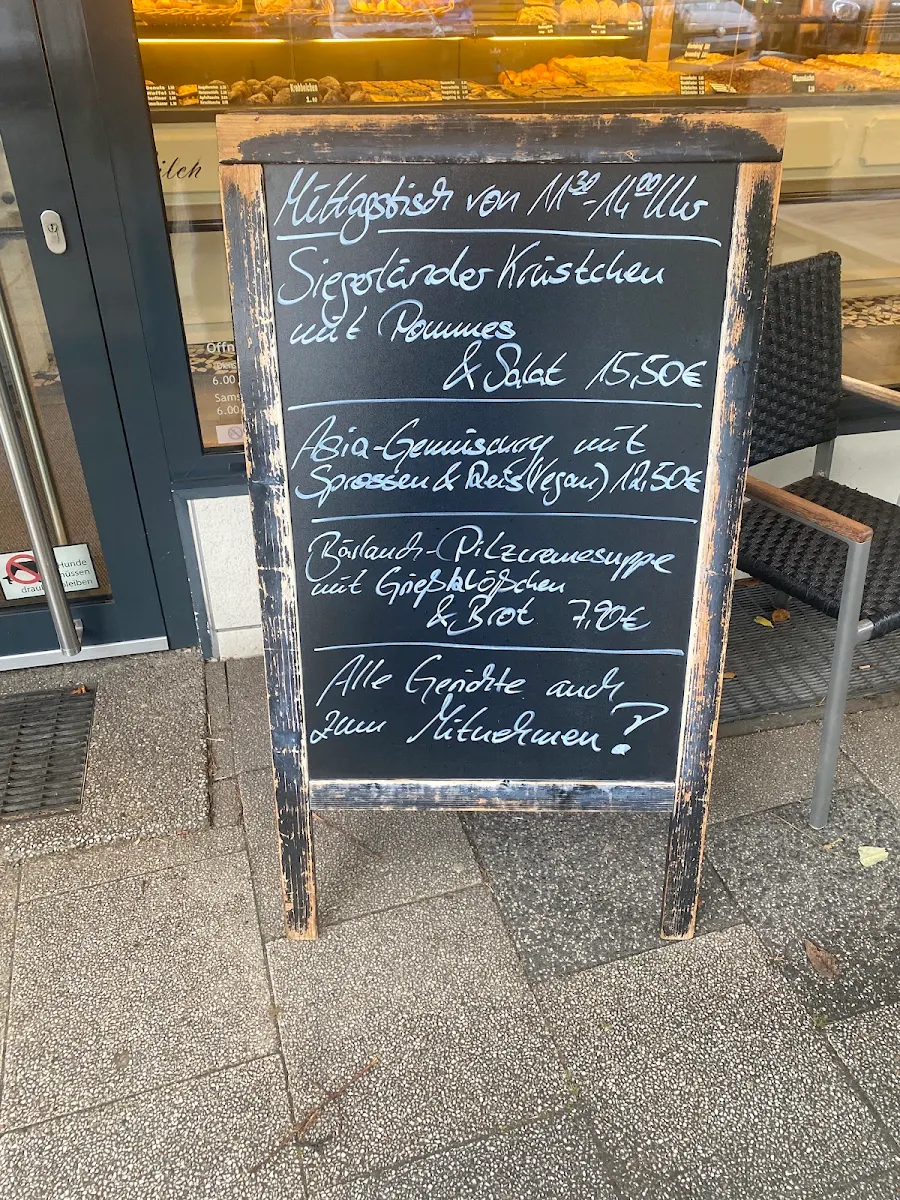 Mittagstisch von 11³⁰-14⁰⁰ Uhr
Siegerländer Krüstchen
mit Pommes
& Salat 15,50€
Asia-Gemüsecurry mit
Sprossen & Reis (Vegan) 12,50€
Bärlauch-Pilzcremesuppe
mit Grießklößchen
& Brot 7,90€
Alle Gerichte auch
zum Mitnehmen!
ilch
Öffn
Diens
6.00
Sams
6.00
Hunde
müssen
draußen
bleiben